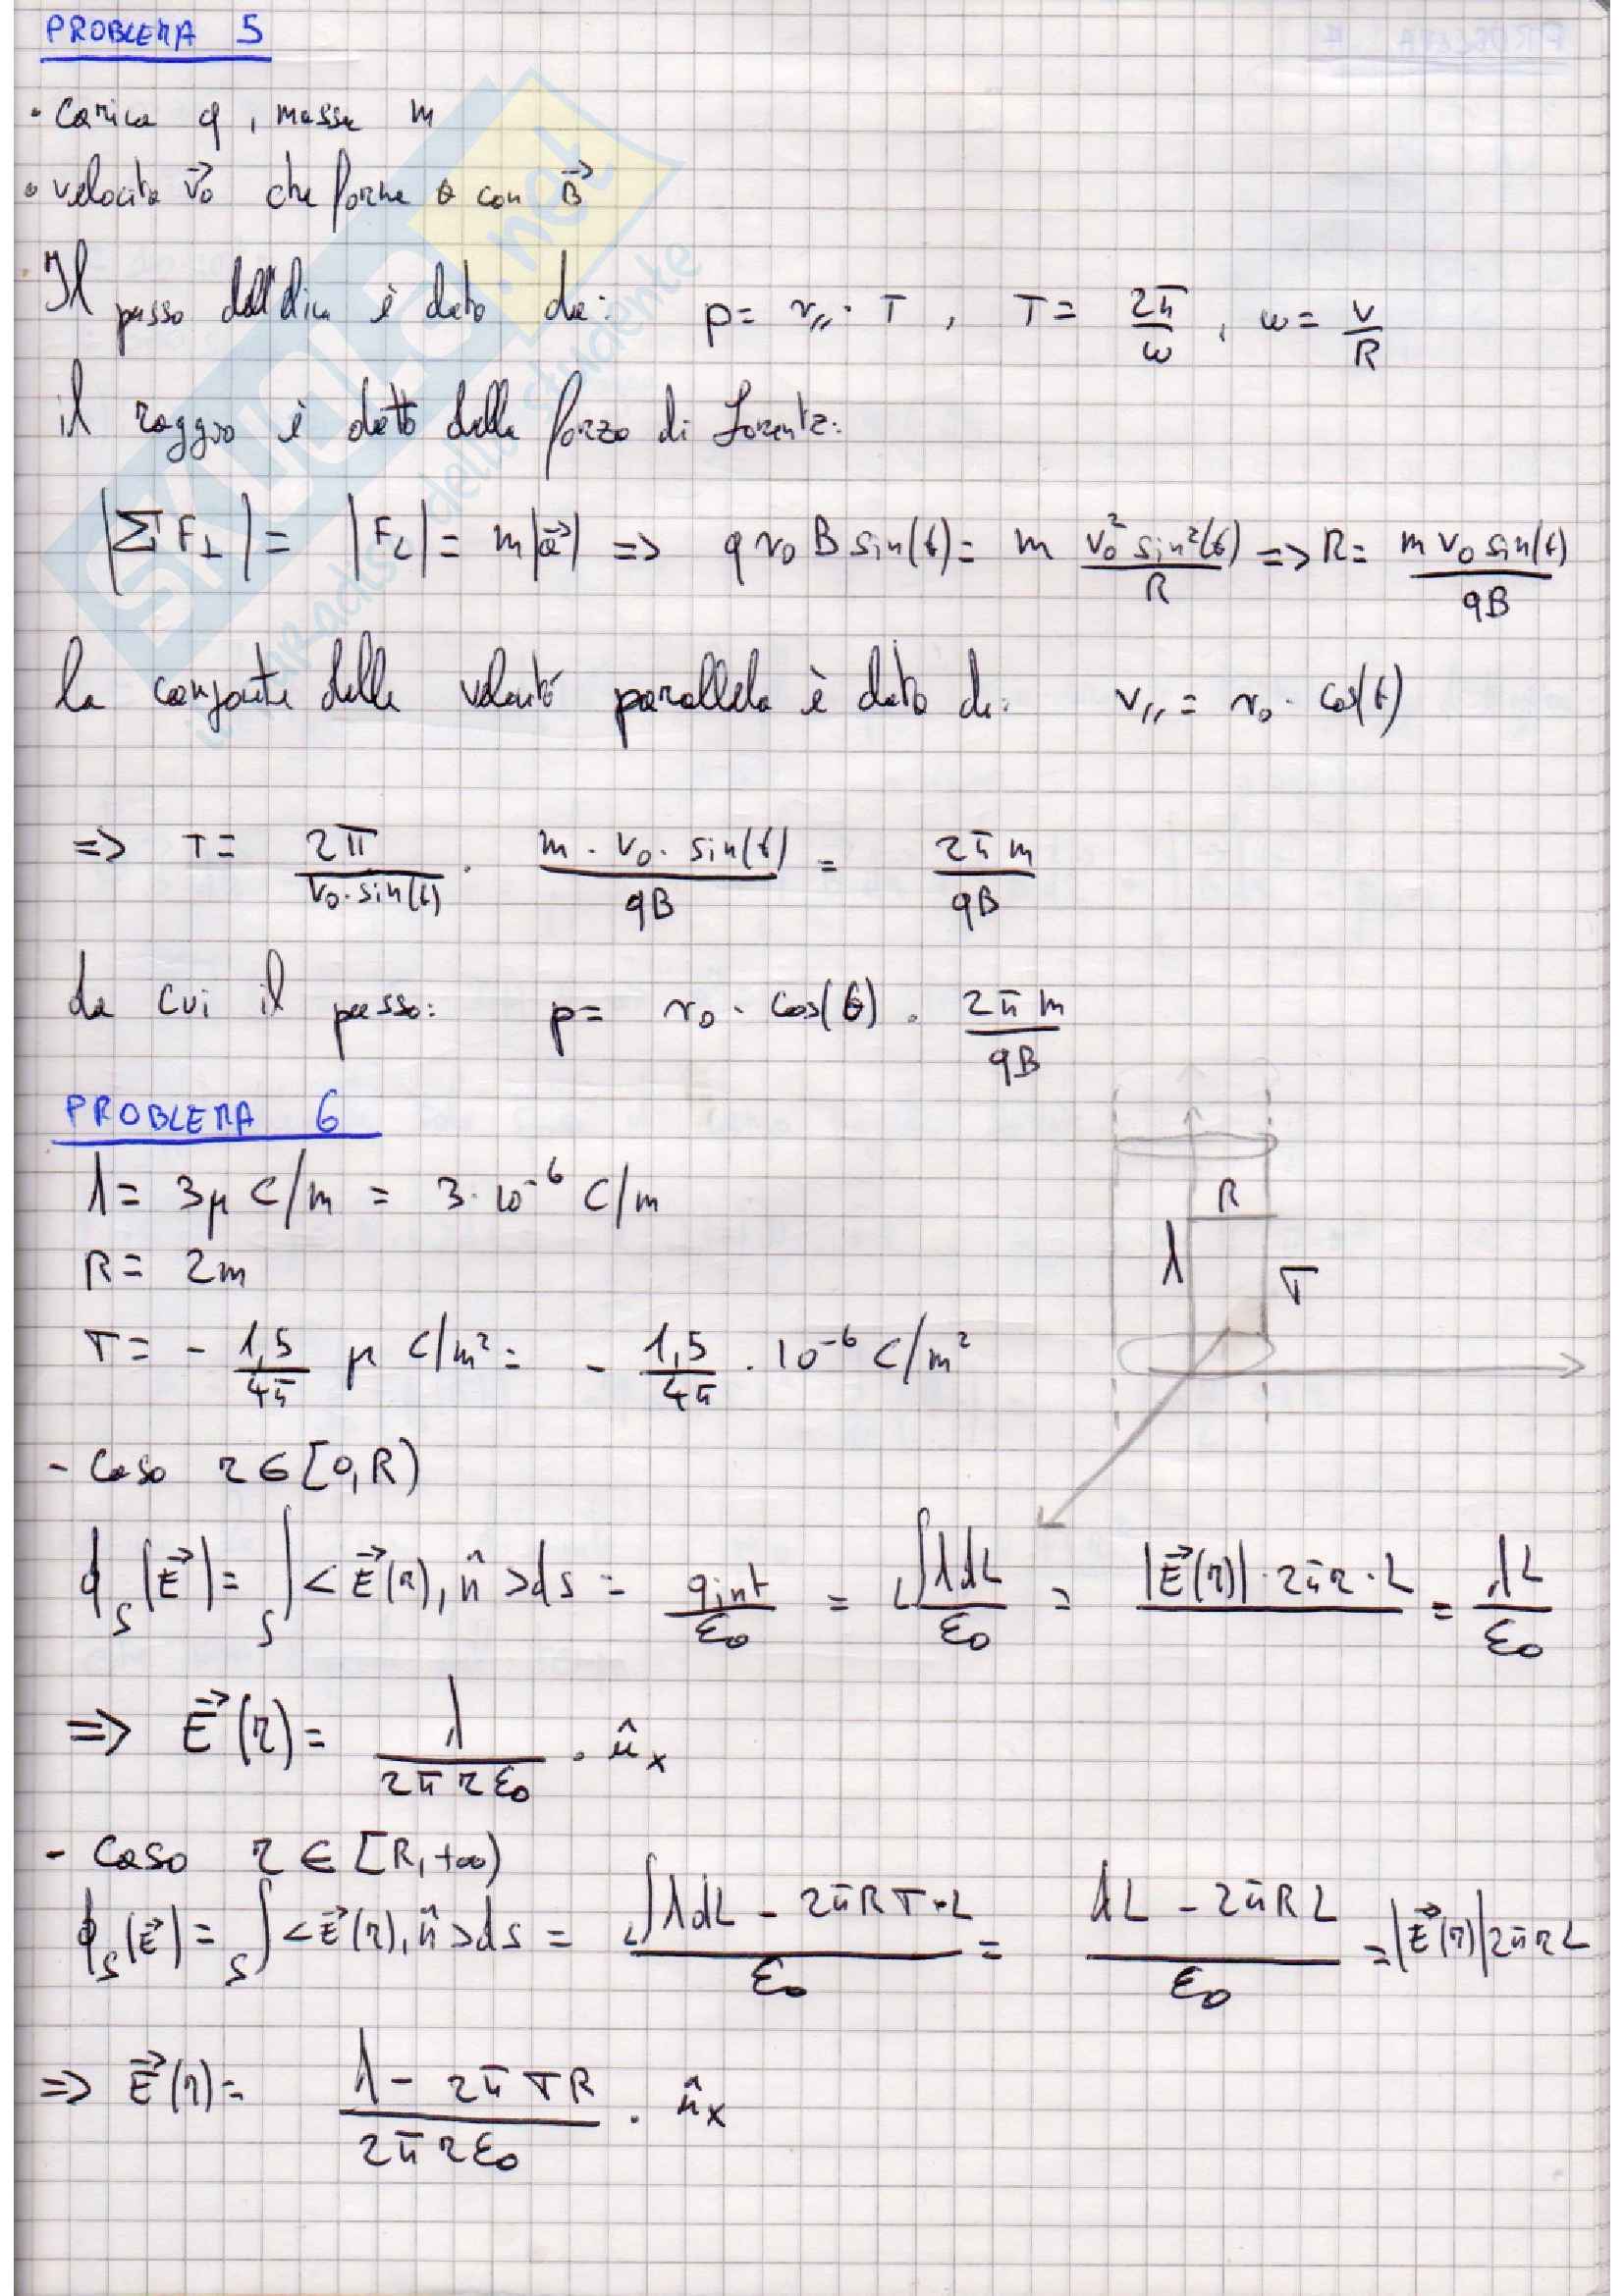 PROBLEMA 5
• carica q, massa m
• velocità v⃗₀ che forma θ con B⃗
Il passo dell'elica è dato da: p = v∥ · T , T = 2π/ω , ω = v/R
il raggio è dato dalla forza di Lorentz:
|ΣF⊥| = |F_L| = m|a⃗| => q v₀ B sin(θ) = m v₀² sin²(θ)/R => R = m v₀ sin(θ)/qB
la componente della velocità parallela è data da: v∥ = v₀ · cos(θ)
=> T = 2π/(v₀ · sin(θ)) · m · v₀ · sin(θ)/qB = 2πm/qB
da cui il passo: p = v₀ · cos(θ) · 2πm/qB
PROBLEMA 6
λ = 3μ C/m = 3 · 10⁻⁶ C/m
R
R = 2m
λ
σ
σ = - 1,5/4π μ C/m² = - 1,5/4π · 10⁻⁶ C/m²
- Caso r ∈ [0, R)
ϕ_S(E⃗) = ∫_S <E⃗(r), n̂> ds = q_int/ε₀ = ∫_L λdL/ε₀ = |E⃗(r)| · 2πr · L = λL/ε₀
=> E⃗(r) = λ/(2πrε₀) · û_x
- Caso r ∈ [R, +∞)
ϕ_S(E⃗) = ∫_S <E⃗(r), n̂> ds = (∫_L λdL - 2πRσ · L)/ε₀ = (λL - 2πRL)/ε₀ = |E⃗(r)| 2πrL
=> E⃗(r) = (λ - 2πσR)/(2πrε₀) · û_x
SKUOLA.net
il paradiso dello studente